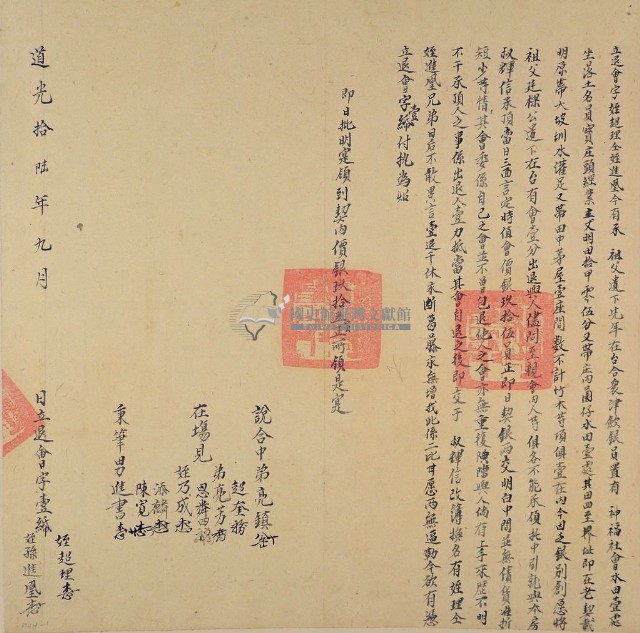 立退會字姪超理仝姪進凰今有承　祖父遺下先年在台合衆津飲銀員置有　神福社會水田壹處
坐落土名員寳庄頭經業主丈明田拾甲零伍分又帶庄內菌仔水田壹處其田四至界址即在老契載
明原帶大坡圳水灌足又帶田中茅屋壹座間數不計竹木等項俱壹在內今因乏銀別創愿將
祖父廷樑公遺下在台有會壹分出退與人儘問至親會內人等俱各不能承領托中引就與本房
叔輝信承頂當日三面言定時值會價銀玖拾伍員正即日契銀兩交明白中間並無債貨准折
短少等情其會委係自己之會並不曾包退他人之會亦無重復典當與人倘有上手來歷不明
不干承頂人之事係出退人壹力抵當其會自退之後即交于　叔輝信改簿換名有姪理仝
姪進凰兄弟日后不敢異言壹退千休永斷葛藤永無增找此係二比甘愿兩無逼勒今欲有憑
立退會字壹紙付执為炤
即日批明寔領到契內價銀玖拾伍員正所領是寔
說合中弟亮鎮
超奎
在塲見弟亮芳
思粦
姪乃成
添麟
陳寬
秉筆男進書
道光拾陸年九月　日立退會字壹紙
姪超理
姪孫進凰
國史館臺灣文獻館
TAIWAN HISTORICA